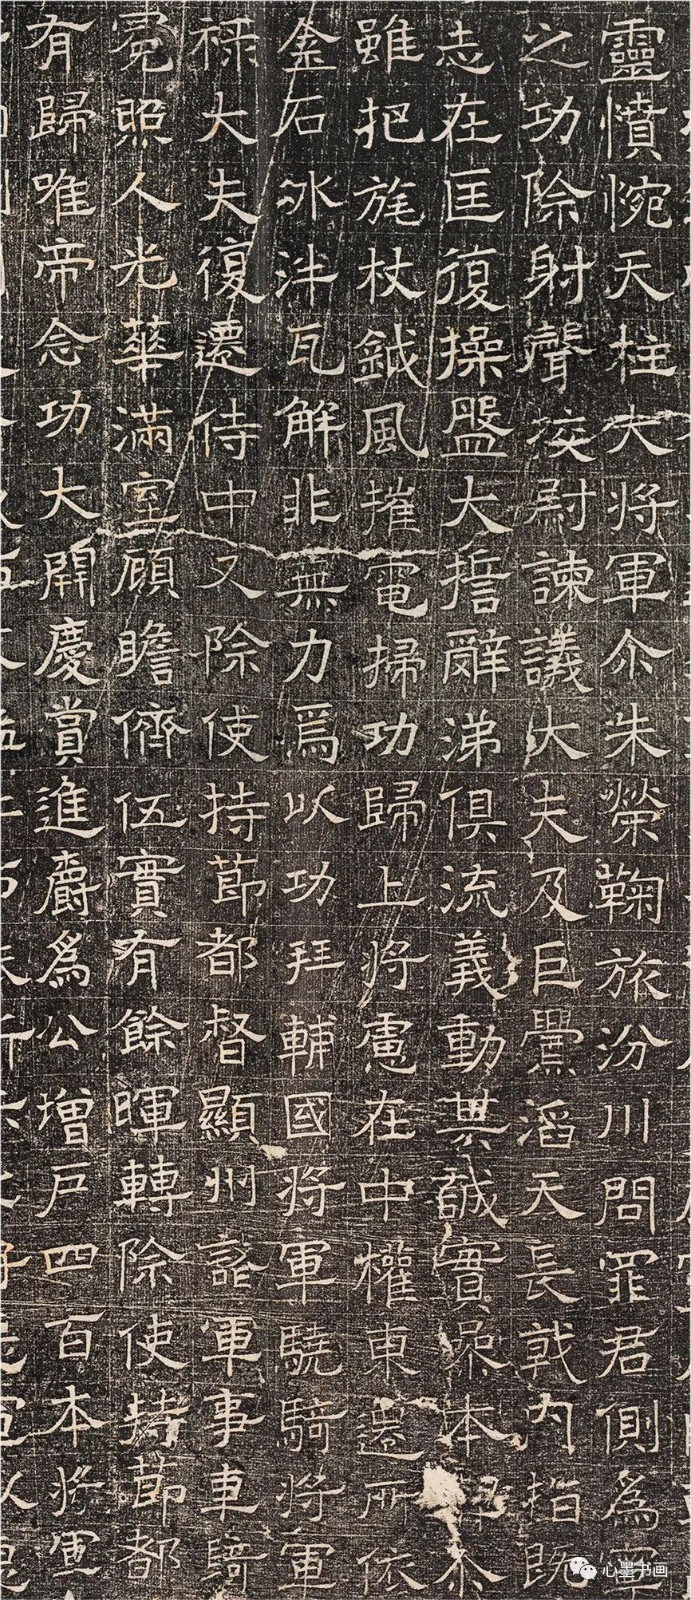 靈憤惋天柱大將軍尒朱榮鞠旅汾川問罪君側爲軍
之功除射聲挍尉諫議大夫及巨釁滔天長戟內指既
志在匡復操盤大誓辭涕俱流義動其誠實 本 尒
雖把旄杖鉞風摧電掃功歸上將慮在中權東還所依
金石冰泮瓦解非無力焉以功拜輔國將軍驍騎將軍
祿大夫復遷侍中又除使持節都督顯州諸軍事車騎
冕照人光華滿室顧瞻儕伍實有餘暉轉除使持節都
有歸唯帝念功大開慶賞進爵爲公增戶四百本將軍
心墨书画